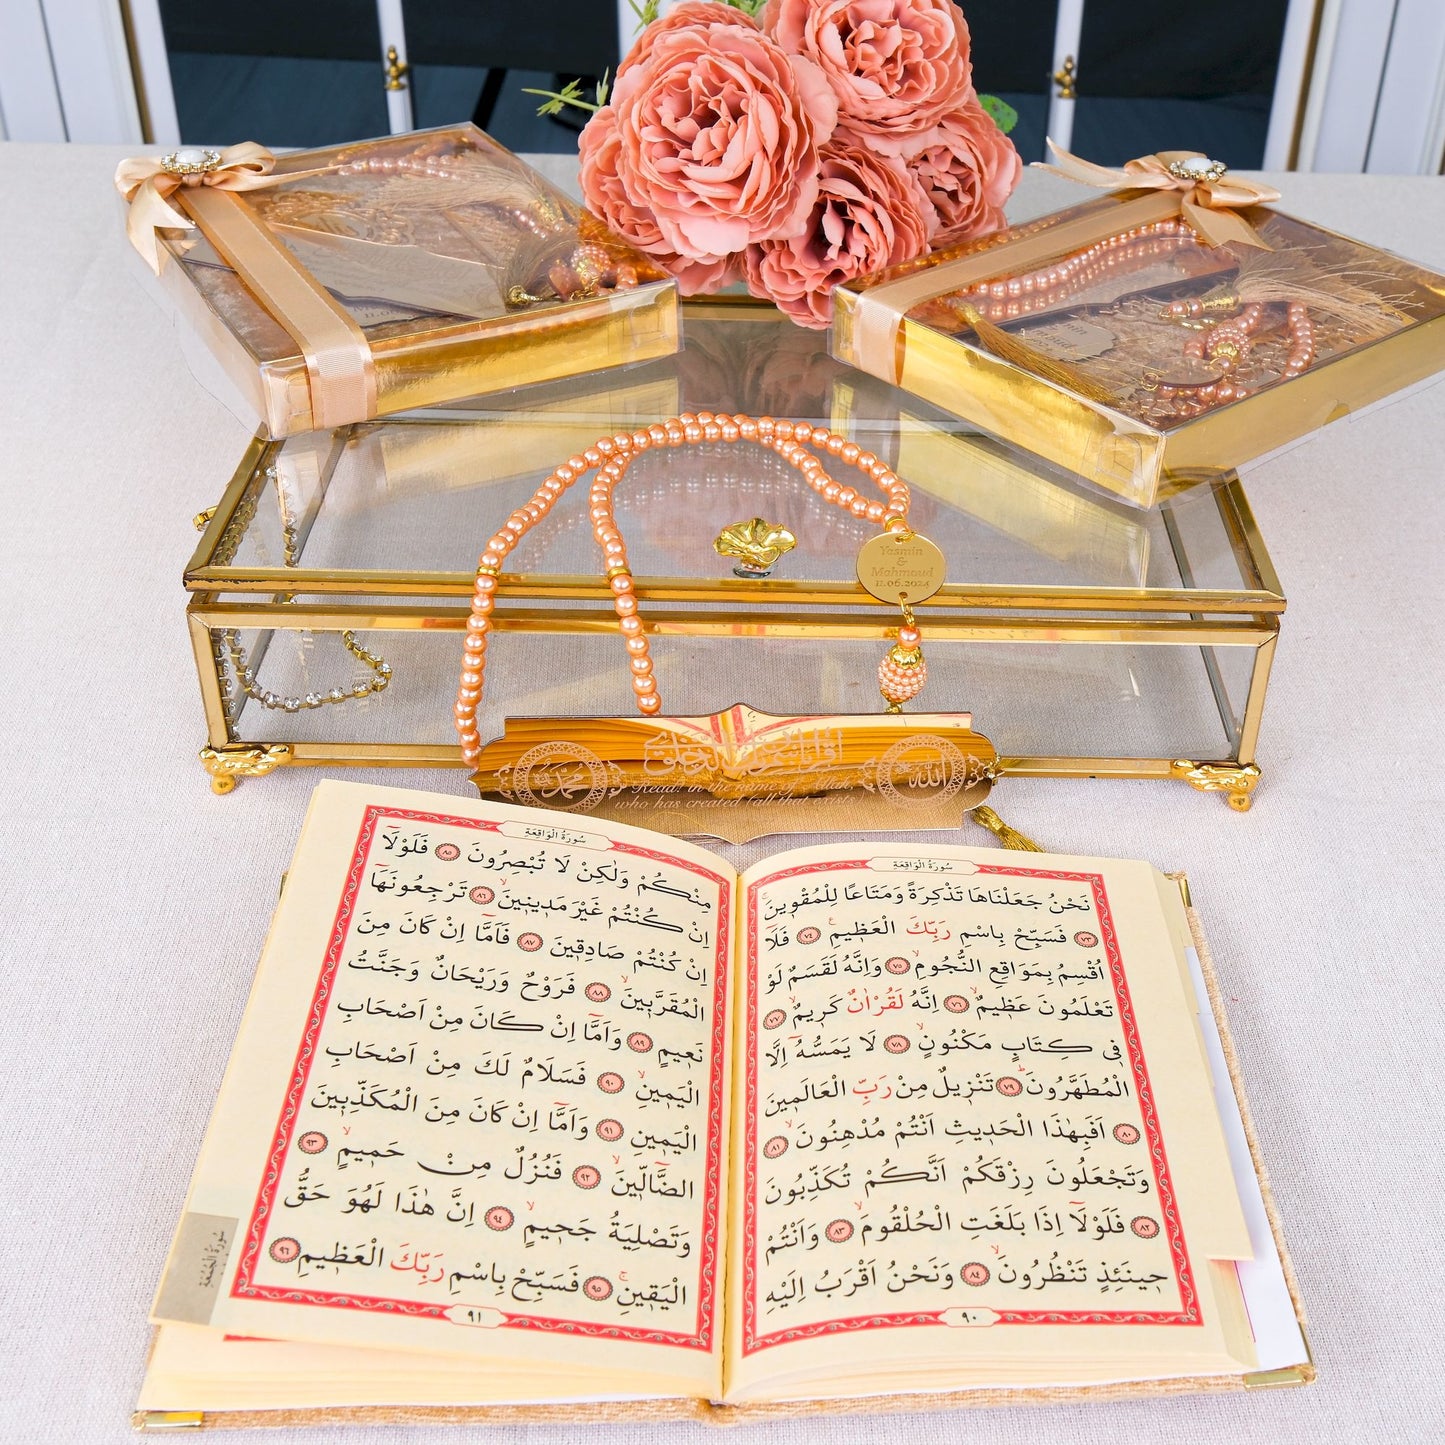 Yasmin
&
Mahmoud
11.06.2024
اقرأ باسم ربك الذي خلق
محمد
الله
Read! in the name of Allah,
who has created (all that exists)
سُورَةُ الْوَاقِعَةِ
نَحْنُ جَعَلْنَاهَا تَذْكِرَةً وَمَتَاعًا لِلْمُقْوِينَۚ
٧٣ فَسَبِّحْ بِاسْمِ رَبِّكَ الْعَظِيمِۚ ٧٤ فَلَٓا
اُقْسِمُ بِمَوَاقِعِ النُّجُومِۙ ٧٥ وَاِنَّهُ لَقَسَمٌ لَوْ
تَعْلَمُونَ عَظِيمٌۙ ٧٦ اِنَّهُ لَقُرْاٰنٌ كَرِيمٌۙ ٧٧
فِى كِتَابٍ مَكْنُونٍۙ ٧٨ لَا يَمَسُّهُٓ اِلَّا
الْمُطَهَّرُونَۜ ٧٩ تَنْزِيلٌ مِنْ رَبِّ الْعَالَمِينَ
٨٠ اَفَبِهٰذَا الْحَدِيثِ اَنْتُمْ مُدْهِنُونَۙ ٨١
وَتَجْعَلُونَ رِزْقَكُمْ اَنَّكُمْ تُكَذِّبُونَ
٨٢ فَلَوْلَٓا اِذَا بَلَغَتِ الْحُلْقُومَۙ ٨٣ وَاَنْتُمْ
حِينَئِذٍ تَنْظُرُونَۙ ٨٤ وَنَحْنُ اَقْرَبُ اِلَيْهِ
٩٠
سُورَةُ الْوَاقِعَةِ
مِنْكُمْ وَلٰكِنْ لَا تُبْصِرُونَ ٨٥ فَلَوْلَٓا
اِنْ كُنْتُمْ غَيْرَ مَدِينِينَۙ ٨٦ تَرْجِعُونَهَٓا
اِنْ كُنْتُمْ صَادِقِينَ ٨٧ فَاَمَّٓا اِنْ كَانَ مِنَ
الْمُقَرَّبِينَۙ ٨٨ فَرَوْحٌ وَرَيْحَانٌ وَجَنَّتُ
نَعِيمٍ ٨٩ وَاَمَّٓا اِنْ كَانَ مِنْ اَصْحَابِ
الْيَمِينِۙ ٩٠ فَسَلَامٌ لَكَ مِنْ اَصْحَابِ
الْيَمِينِ ٩١ وَاَمَّٓا اِنْ كَانَ مِنَ الْمُكَذِّبِينَ
الضَّٓالِّينَۙ ٩٢ فَنُزُلٌ مِنْ حَمِيمٍۙ ٩٣
وَتَصْلِيَةُ جَحِيمٍۙ ٩٤ اِنَّ هٰذَا لَهُوَ حَقُّ
الْيَقِينِۚ ٩٥ فَسَبِّحْ بِاسْمِ رَبِّكَ الْعَظِيمِ ٩٦
٩١
سُورَةُ الْجُمُعَةِ